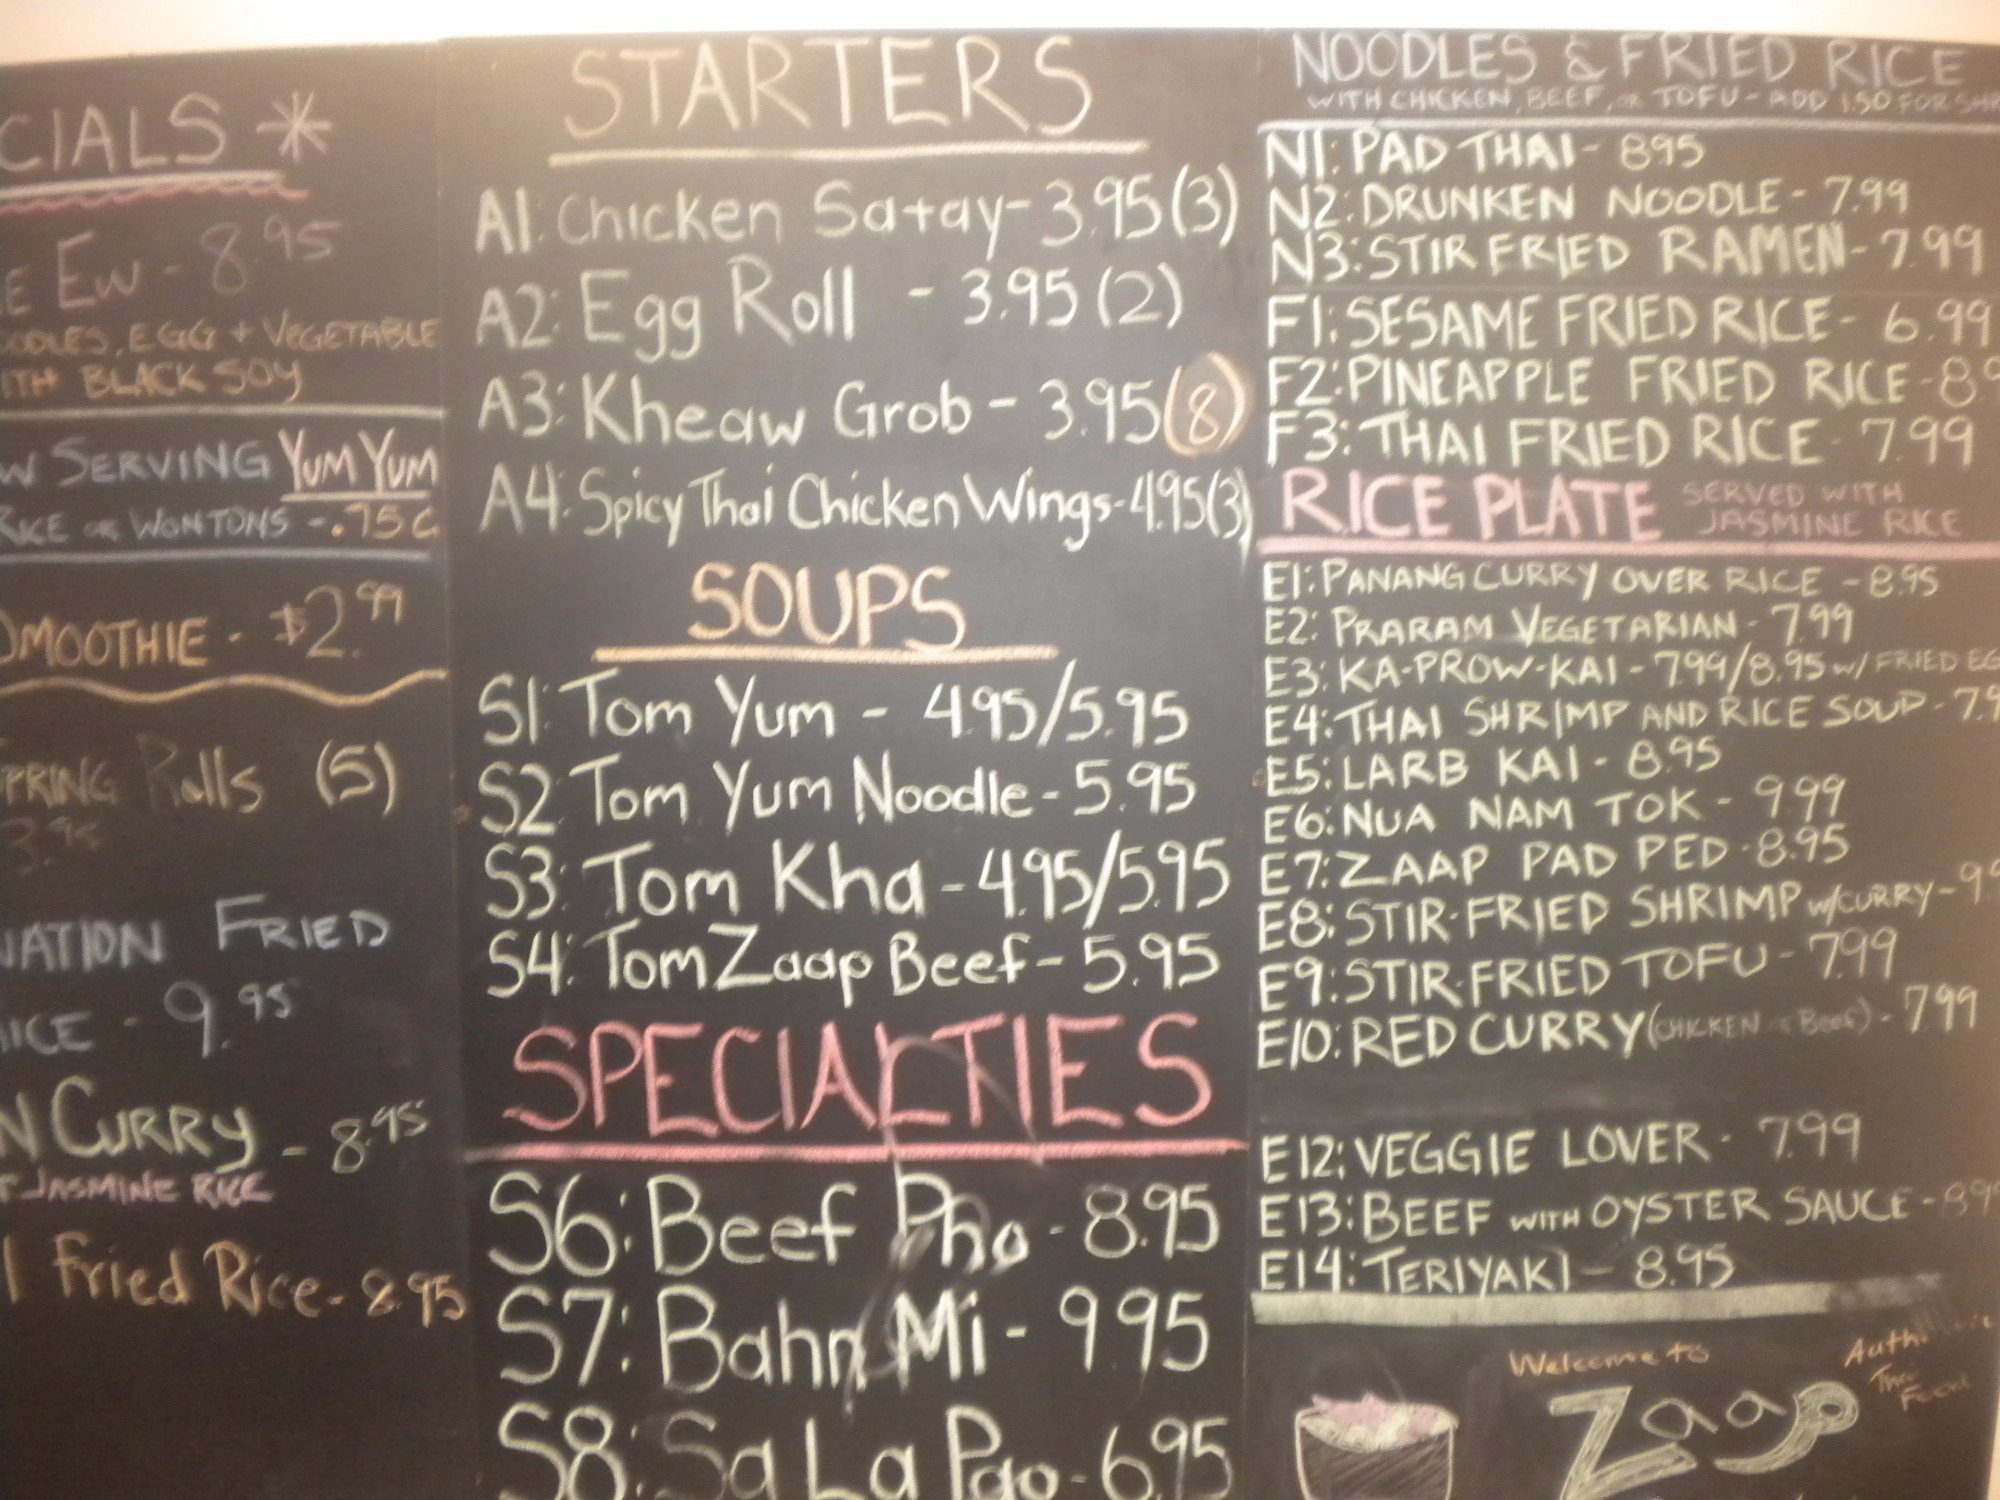 CIALS *
EW - 8.95
EGG + VEGETABLE
BLACK SOY
SERVING YUM YUM
RICE OR WONTONS - .75¢
SMOOTHIE - $2.99
SPRING Rolls (5)
3.95
NATION FRIED
RICE - 9.95
N CURRY - 8.95
JASMINE RICE
Fried Rice - 8.95
STARTERS
A1: Chicken Satay - 3.95 (3)
A2: Egg Roll - 3.95 (2)
A3: Kheaw Grob - 3.95 (8)
A4: Spicy Thai Chicken Wings - 4.95 (3)
SOUPS
S1: Tom Yum - 4.95/5.95
S2: Tom Yum Noodle - 5.95
S3: Tom Kha - 4.95/5.95
S4: Tom Zaap Beef - 5.95
SPECIALTIES
S6: Beef Pho - 8.95
S7: Bahn Mi - 9.95
S8: Sa La Pao - 6.95
NOODLES & FRIED RICE
WITH CHICKEN, BEEF, OR TOFU - ADD 1.50 FOR
N1: PAD THAI - 8.95
N2: DRUNKEN NOODLE - 7.99
N3: STIR FRIED RAMEN - 7.99
F1: SESAME FRIED RICE - 6.99
F2: PINEAPPLE FRIED RICE - 8
F3: THAI FRIED RICE - 7.99
RICE PLATE SERVED WITH JASMINE RICE
E1: PANANG CURRY OVER RICE - 8.95
E2: PRARAM VEGETARIAN - 7.99
E3: KA-PROW-KAI - 7.99/8.95 w/ FRIED EG
E4: THAI SHRIMP AND RICE SOUP - 7.9
E5: LARB KAI - 8.95
E6: NUA NAM TOK - 9.99
E7: ZAAP PAD PED - 8.95
E8: STIR-FRIED SHRIMP w/CURRY - 9.9
E9: STIR-FRIED TOFU - 7.99
E10: RED CURRY (CHICKEN or Beef) - 7.99
E12: VEGGIE LOVER - 7.99
E13: BEEF WITH OYSTER SAUCE - 8.9
E14: TERIYAKI - 8.95
Welcome to
Zaap
Thai
Food